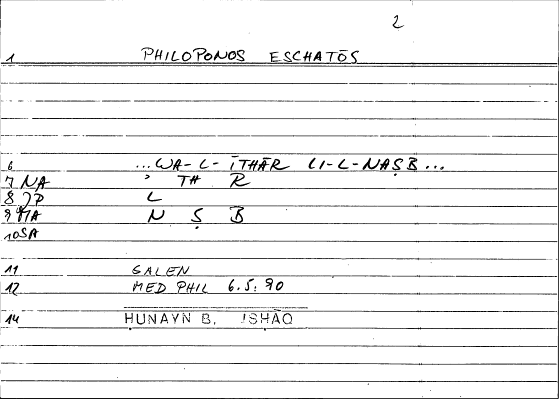 2
1 PHILOPONOS ESCHATŌS
6 ...WA-L-ĪTHĀR LI-L-NAṢB...
7 NA ʾ TH R
8 JP L
9 MA N Ṣ B
10 SA
11 GALEN
12 MED PHIL 6.5:90
14 ḤUNAYN B. ISḤĀQ